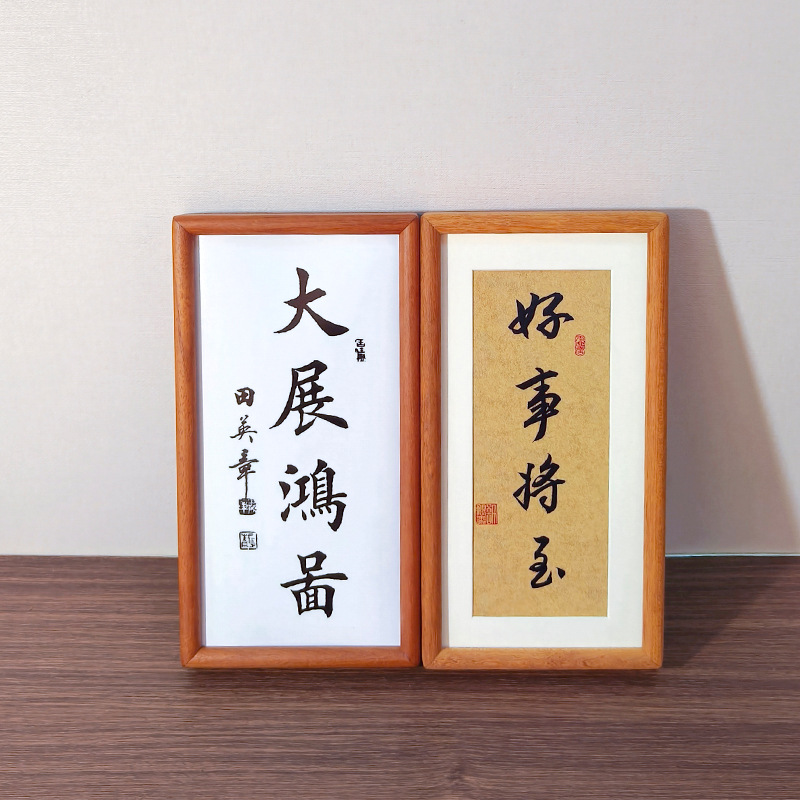 大展鸿啚
田英章
好事将至